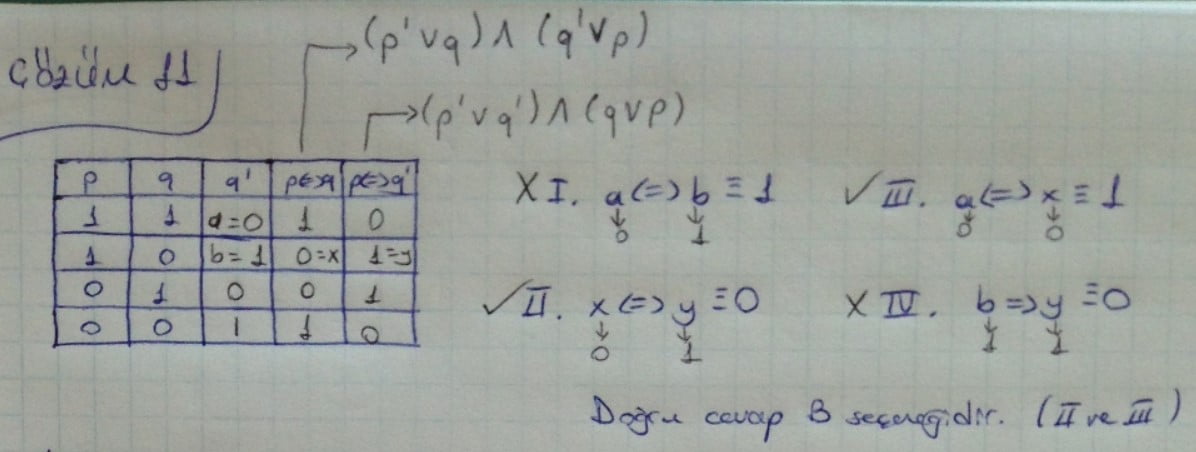 Çözüm 11
(p'vq)∧(q'vp)
(p'vq')∧(qvp)
p q q' p<=>q p<=>q'
1 1 a=0 1 0
1 0 b=1 0=x 1=y
0 1 0 0 1
0 0 1 1 0
X I. a<=>b≡1
0 1
✓III. a<=>x≡1
0 0
✓II. x<=>y≡0
0 1
X IV. b=>y≡0
1 1
Doğru cevap B seçeneğidir. (II ve III)